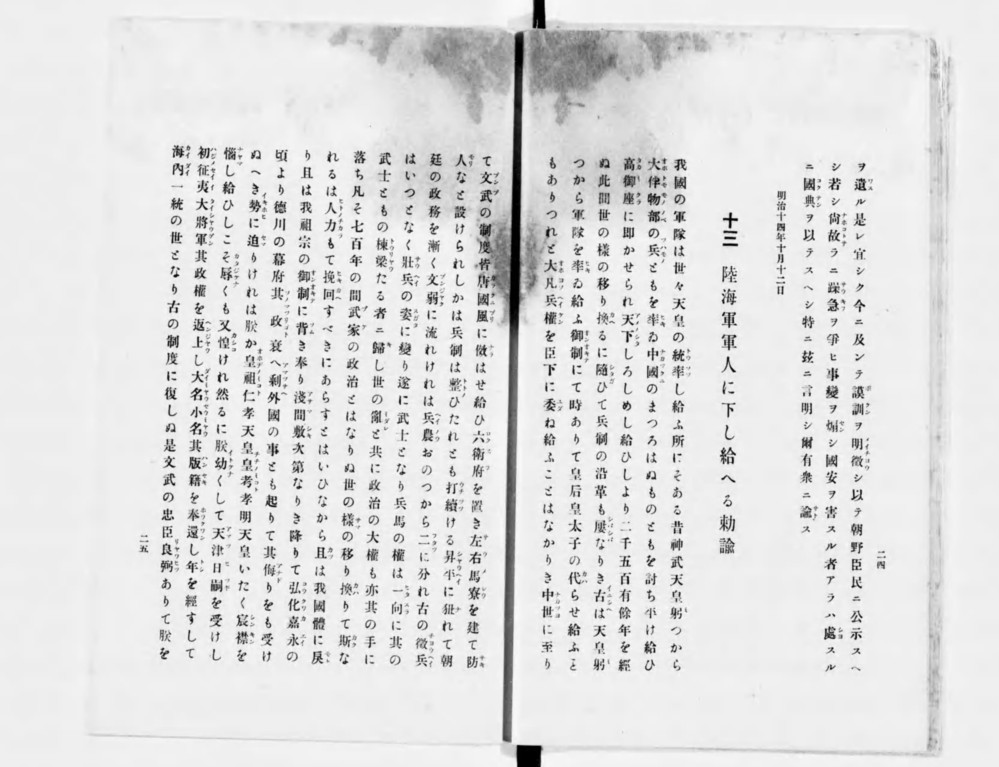 二四
ヲ遺ル是レ宜シク今ニ及ンテ謨訓ヲ明徴シ以テ朝野臣民ニ公示スヘ
シ若シ尙故ラニ躁急ヲ爭ヒ事變ヲ煽シ國安ヲ害スル者アラハ處スル
ニ國典ヲ以テスヘシ特ニ玆ニ言明シ爾有衆ニ諭ス
明治十四年十月十二日
十三 陸海軍軍人に下し給へる勅諭
我國の軍隊は世々天皇の統率し給ふ所にそある昔神武天皇躬つから
大伴物部の兵ともを率ゐ中國のまつろはぬものともを討ち平け給ひ
高御座に卽かせられ天下しろしめし給ひしより二千五百有餘年を經
ぬ此間世の樣の移り換るに隨ひて兵制の沿革も屢なりき古は天皇躬
つから軍隊を率ゐ給ふ御制にて時ありて皇后皇太子の代らせ給ふと
もありつれと大凡兵權を臣下に委ね給ふことはなかりき中世に至り
て文武の制度皆唐國風に倣はせ給ひ六衛府を置き左右馬寮を建て防
人なと設けられしかは兵制は整ひたれとも打續ける昇平に狃れて朝
廷の政務を漸く文弱に流れけれは兵農おのつから二に分れ古の徵兵
はいつとなく壯兵の姿に變り遂に武士となり兵馬の權は一向に其の
武士ともの棟梁たる者ニ歸し世の亂と共に政治の大權も亦其の手に
落ち凡そ七百年の間武家の政治とはなりぬ世の樣の移り換りて斯な
れるは人力もて挽回すべきにあらすとはいひなから且は我國體に戾
り且は我祖宗の御制に背き奉り淺間敷次第なりき降りて弘化嘉永の
頃より德川の幕府其政衰へ剩外國の事とも起りて其侮りをも受け
ぬへき勢に迫りけれは朕か皇祖仁孝天皇皇考孝明天皇いたく宸襟を
惱し給ひしこそ辱くも又惶けれ然るに朕幼くして天津日嗣を受けし
初征夷大將軍其政權を返上し大名小名其版籍を奉還し年を經すして
海內一統の世となり古の制度に復しぬ是文武の忠臣良弼ありて朕を
二五